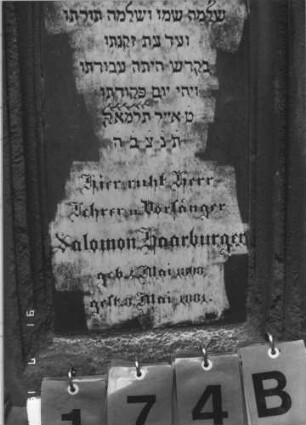 שלמה שמו ושלמה תורתו
ועד עת זקנתו
בקדש היתה עבודתו
ויהי יום פקודתו
ט אייר תרמאק
ת נ צ ב ה
Hier ruht Herr
Lehrer u. Vorsänger
Salomon Haarburger
geb. Mai
gest. 8. Mai 1881.
174B